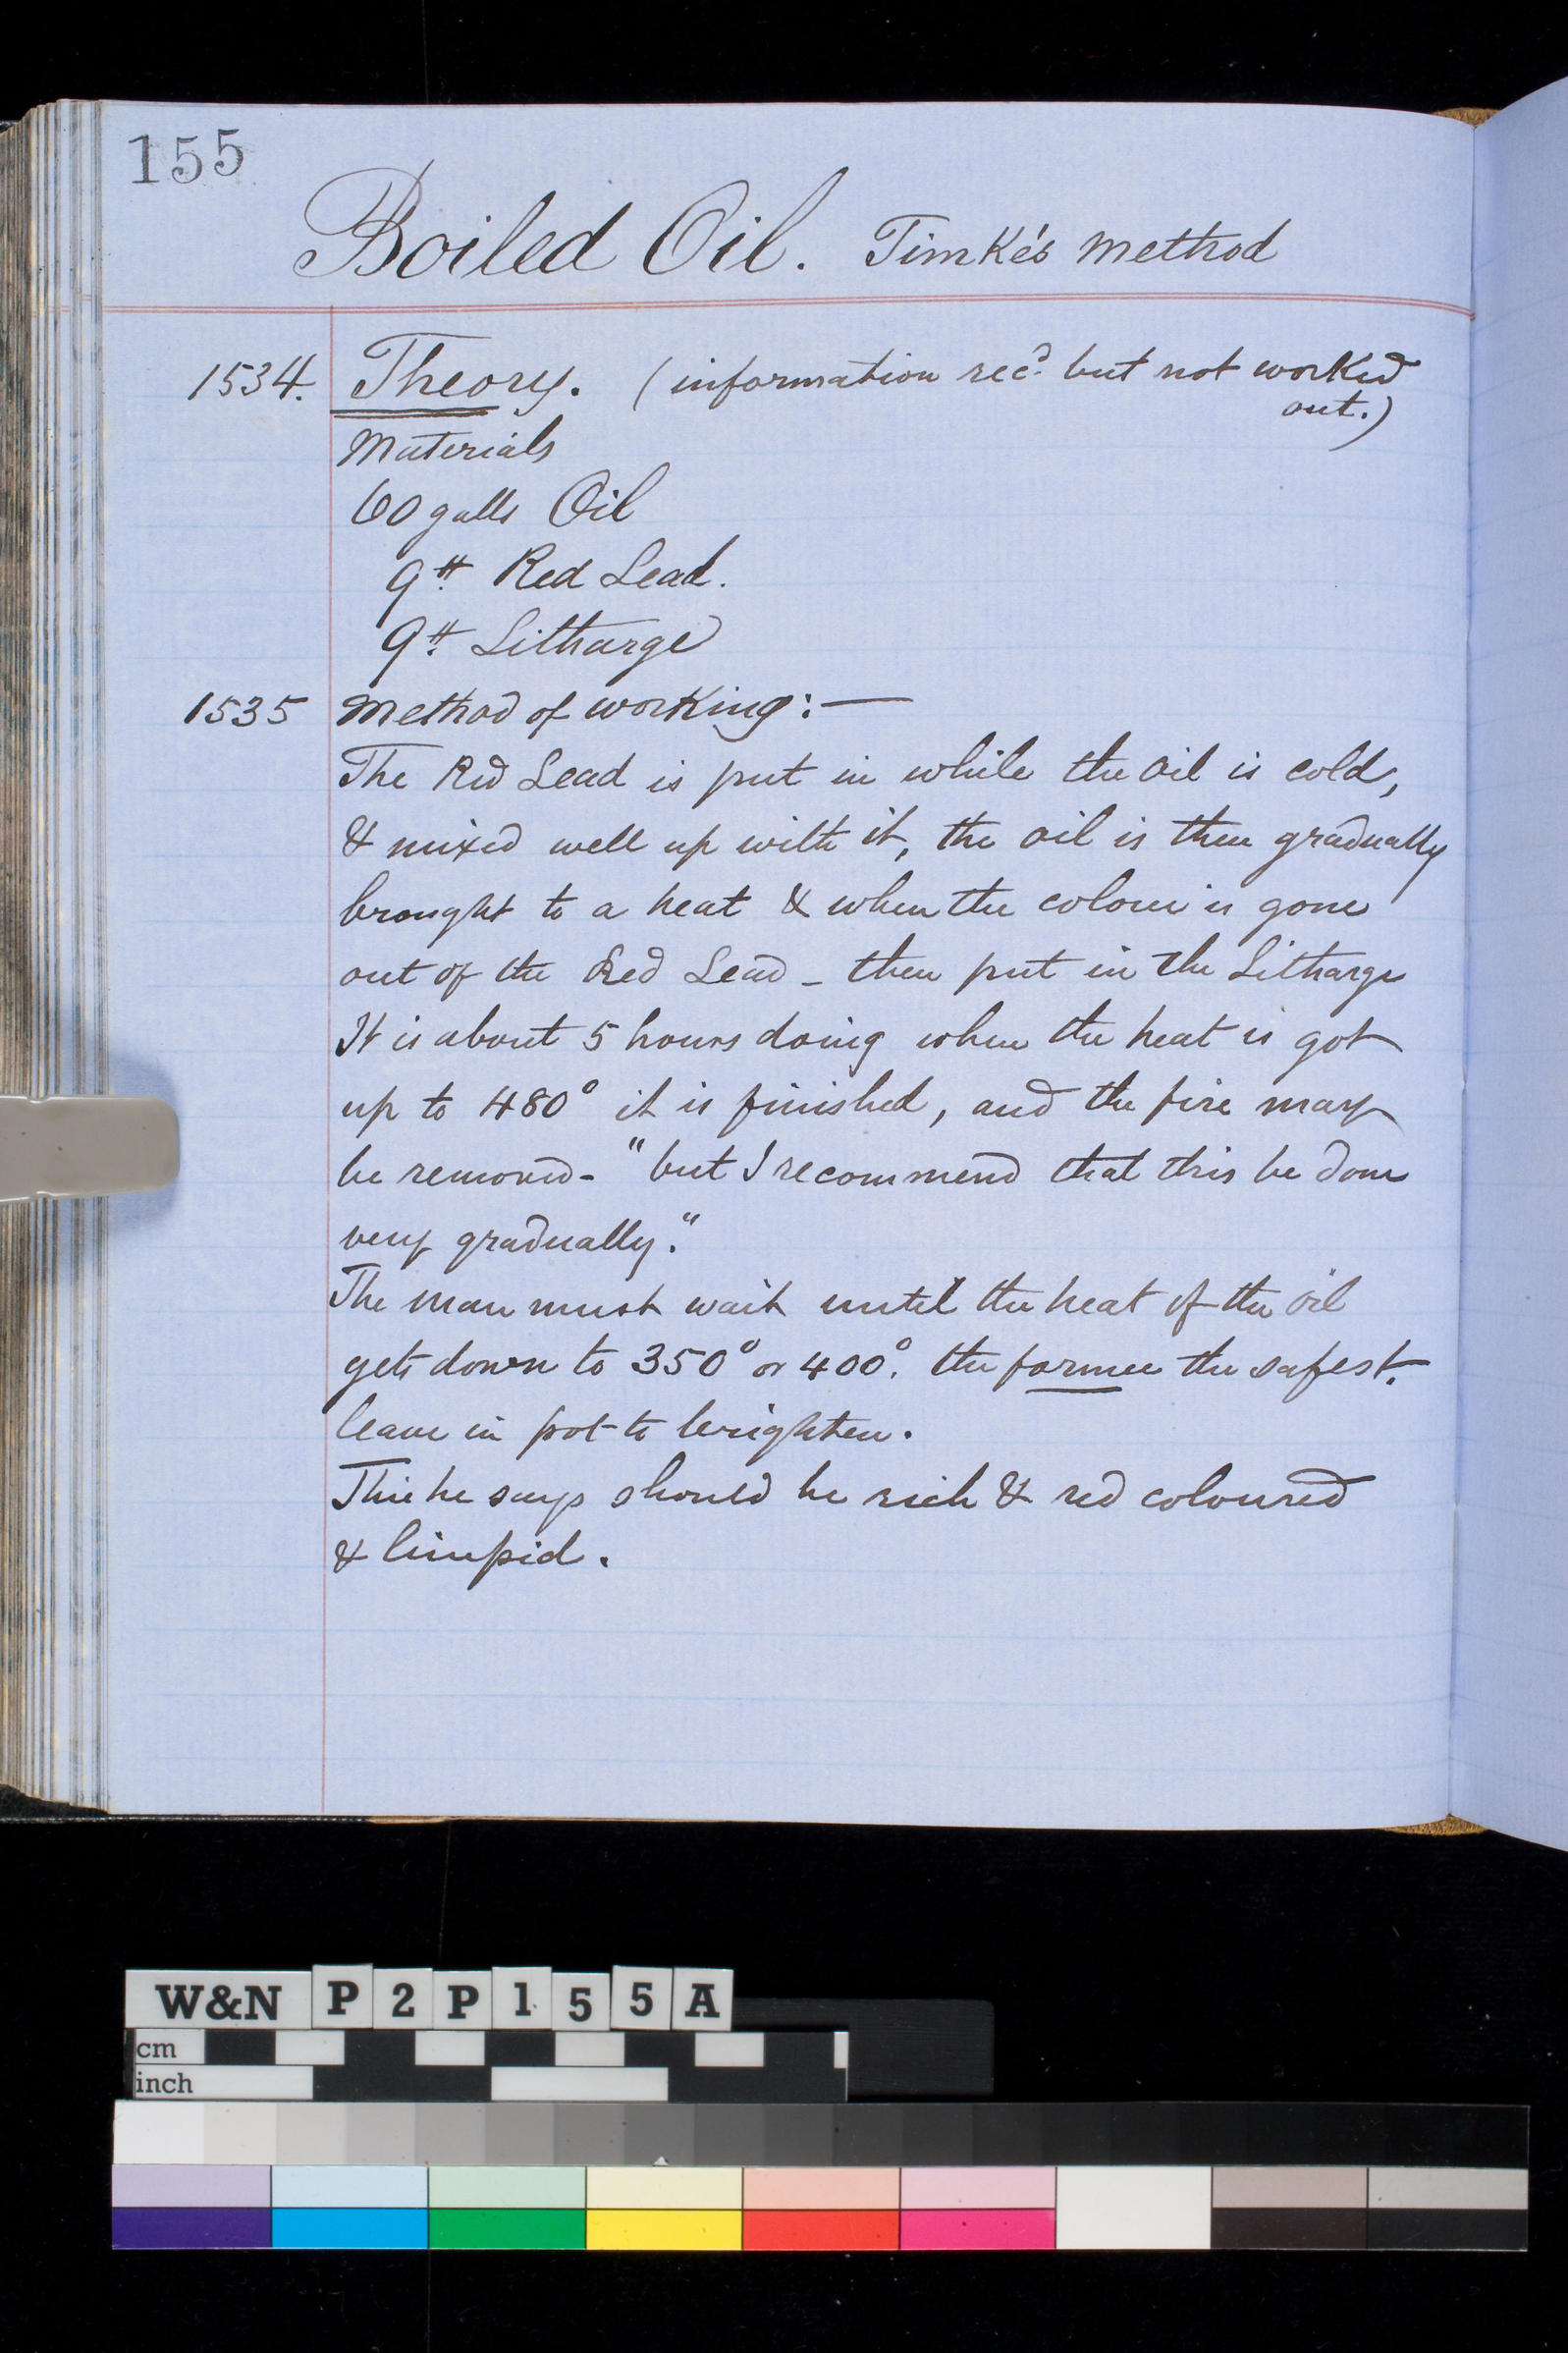 155
Boiled Oil. Timke's Method
1534. Theory. (information recd. but not worked
out.)
Materials
60 galls Oil
9 ℔ Red Lead.
9 ℔ Litharge
1535 Method of working:—
The Red Lead is put in while the oil is cold,
& mixed well up with it, the oil is then gradually
brought to a heat & when the colour is gone
out of the Red Lead - then put in the Litharge
It is about 5 hours doing when the heat is got
up to 480° it is finished, and the fire may
be removed - "but I recommend that this be done
very gradually."
The man must wait until the heat of the oil
gets down to 350° or 400°. the former the safest.
leave in pot to brighten.
This he says should be rich & red coloured
& limpid.
W&N P2P155A
cm
inch